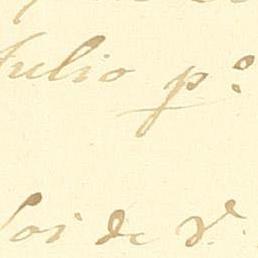 Julio p.º
Soi de V.